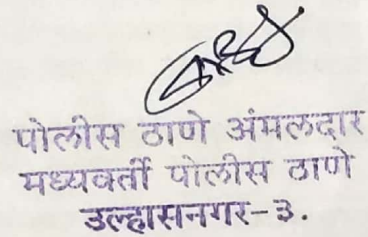 पोलीस ठाणे अंमलदार
मध्यवर्ती पोलीस ठाणे
उल्हासनगर-३.